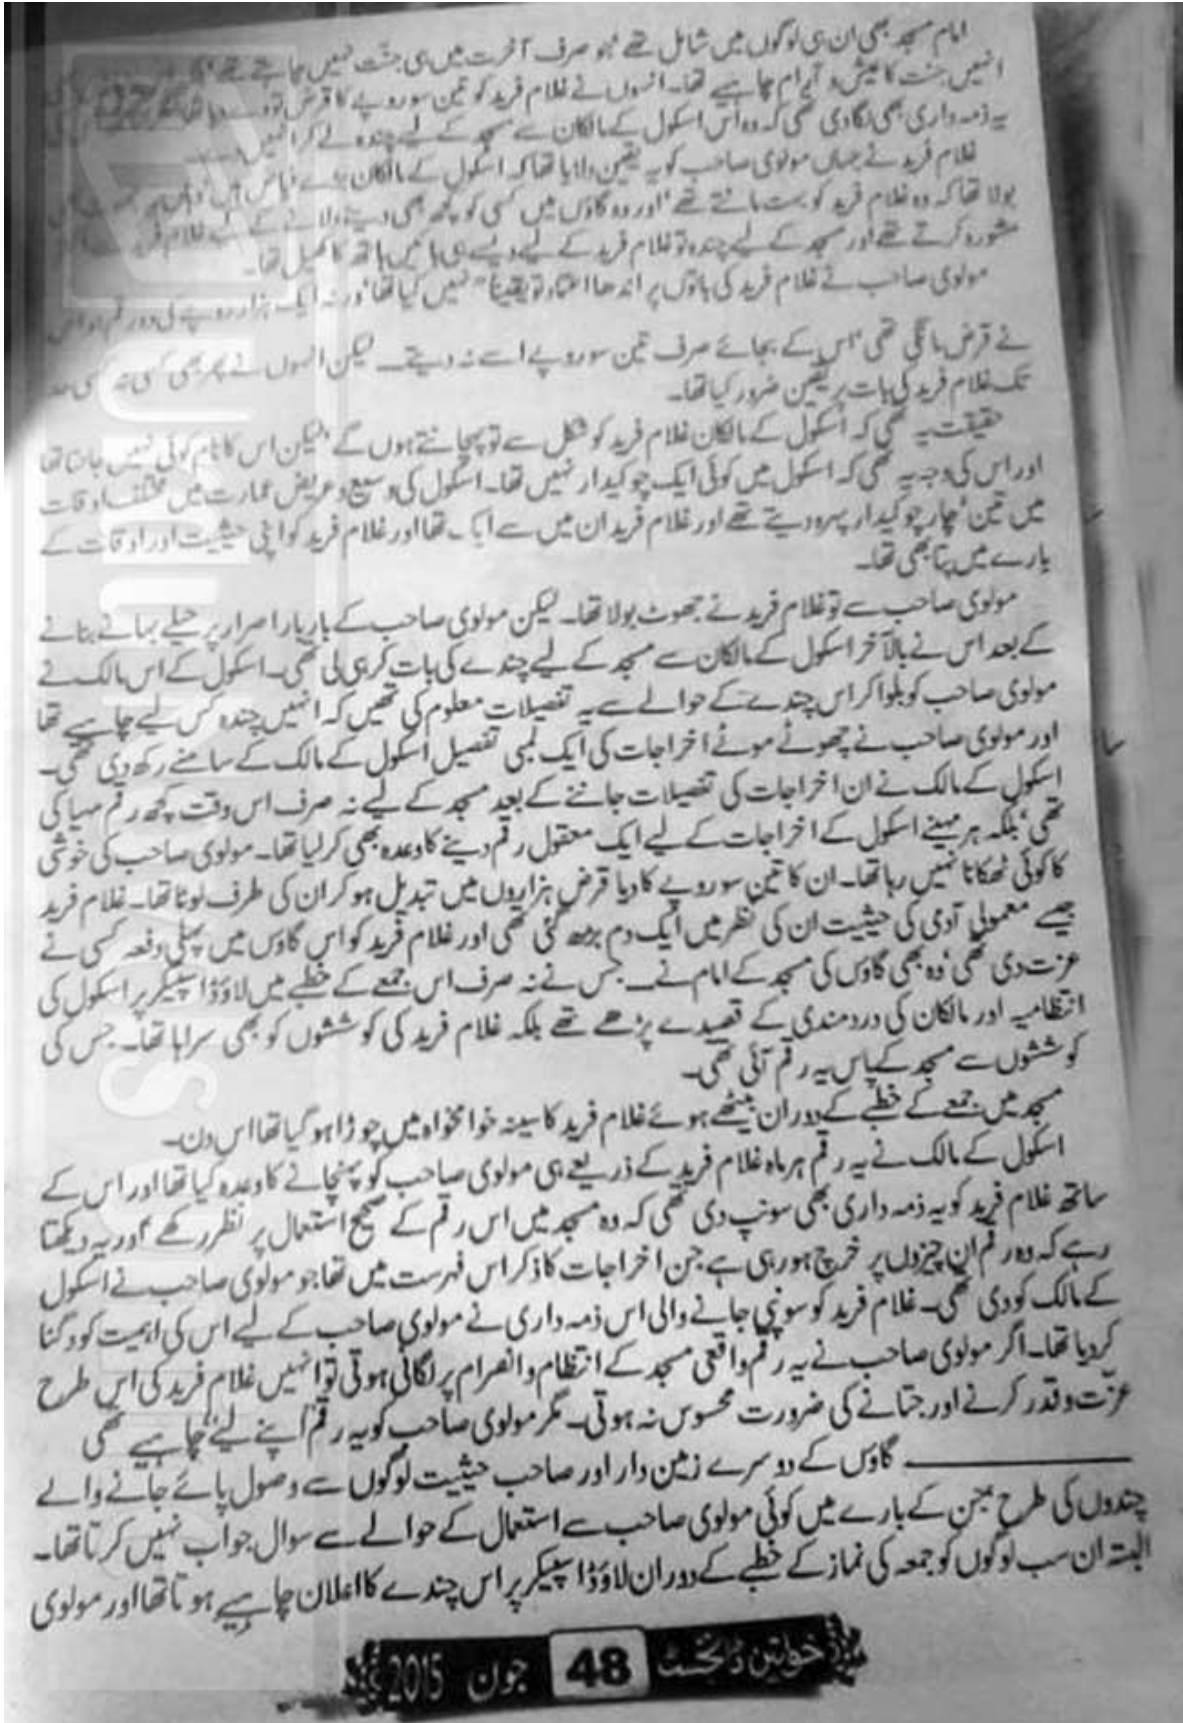 امام مسجد بھی ان ہی لوگوں میں شامل تھے جو صرف آخرت میں ہی جنت نہیں چاہتے تھے
انہیں جنت کا عیش و آرام چاہیے تھا۔ انہوں نے غلام فرید کو تین سو روپے کا قرض تو دے دیا تھا
یہ ذمہ داری بھی لگا دی تھی کہ وہ اس اسکول کے مالکان سے مسجد کے لیے چندہ لے کر انہیں دے۔
غلام فرید نے جہاں مولوی صاحب کو یہ یقین دلایا تھا کہ اسکول کے مالکان بڑے فیاض ہیں وہیں یہ جھوٹ بھی
بولا تھا کہ وہ غلام فرید کو بہت مانتے تھے اور وہ گاؤں میں کسی کو کچھ بھی دینے دلانے کے لیے غلام فرید سے
مشورہ کرتے تھے اور مسجد کے لیے چندہ تو غلام فرید کے لیے ویسے ہی بائیں ہاتھ کا کھیل تھا۔
مولوی صاحب نے غلام فرید کی باتوں پر اندھا اعتماد تو یقیناً نہیں کیا تھا ورنہ ایک ہزار روپے کی وہ رقم جو اس
نے قرض مانگی تھی اس کے بجائے صرف تین سو روپے اسے نہ دیتے۔ لیکن انہوں نے پھر بھی کسی نہ کسی حد
تک غلام فرید کی بات پر یقین ضرور کیا تھا۔
حقیقت یہ تھی کہ اسکول کے مالکان غلام فرید کو شکل سے تو پہچانتے ہوں گے لیکن اس کا نام کوئی نہیں جانتا تھا
اور اس کی وجہ یہ تھی کہ اسکول میں کوئی ایک چوکیدار نہیں تھا۔ اسکول کی وسیع و عریض عمارت میں مختلف اوقات
میں تین چار چوکیدار پہرہ دیتے تھے اور غلام فرید ان میں سے ایک تھا اور غلام فرید کو اپنی حیثیت اور اوقات کے
بارے میں پتا بھی تھا۔
مولوی صاحب سے تو غلام فرید نے جھوٹ بولا تھا۔ لیکن مولوی صاحب کے بار بار اصرار پر حیلے بہانے بنانے
کے بعد اس نے بالآخر اسکول کے مالکان سے مسجد کے لیے چندے کی بات کر ہی لی تھی۔ اسکول کے اس مالک نے
مولوی صاحب کو بلوا کر اس چندے کے حوالے سے یہ تفصیلات معلوم کی تھیں کہ انہیں چندہ کس لیے چاہیے تھا
اور مولوی صاحب نے چھوٹے موٹے اخراجات کی ایک لمبی تفصیل اسکول کے مالک کے سامنے رکھ دی تھی۔
اسکول کے مالک نے ان اخراجات کی تفصیلات جاننے کے بعد مسجد کے لیے نہ صرف اس وقت کچھ رقم مہیا کی
تھی بلکہ ہر مہینے اسکول کے اخراجات کے لیے ایک معقول رقم دینے کا وعدہ بھی کر لیا تھا۔ مولوی صاحب کی خوشی
کا کوئی ٹھکانا نہیں رہا تھا۔ ان کا تین سو روپے کا دیا قرض ہزاروں میں تبدیل ہو کر ان کی طرف لوٹا تھا۔ غلام فرید
جیسے معمولی آدمی کی حیثیت ان کی نظر میں ایک دم بڑھ گئی تھی اور غلام فرید کو اس گاؤں میں پہلی دفعہ کسی نے
عزت دی تھی وہ بھی گاؤں کی مسجد کے امام نے۔ جس نے نہ صرف اس جمعے کے خطبے میں لاؤڈ اسپیکر پر اسکول کی
انتظامیہ اور مالکان کی دردمندی کے قصیدے پڑھے تھے بلکہ غلام فرید کی کوششوں کو بھی سراہا تھا۔ جس کی
کوششوں سے مسجد کے پاس یہ رقم آئی تھی۔
مسجد میں جمعے کے خطبے کے دوران بیٹھے ہوئے غلام فرید کا سینہ خوامخواہ میں چوڑا ہو گیا تھا اس دن۔
اسکول کے مالک نے یہ رقم ہر ماہ غلام فرید کے ذریعے ہی مولوی صاحب کو پہنچانے کا وعدہ کیا تھا اور اس کے
ساتھ غلام فرید کو یہ ذمہ داری بھی سونپ دی تھی کہ وہ مسجد میں اس رقم کے صحیح استعمال پر نظر رکھے اور یہ دیکھتا
رہے کہ وہ رقم ان چیزوں پر خرچ ہو رہی ہے جن اخراجات کا ذکر اس فہرست میں تھا جو مولوی صاحب نے اسکول
کے مالک کو دی تھی۔ غلام فرید کو سونپی جانے والی اس ذمہ داری نے مولوی صاحب کے لیے اس کی اہمیت کو دگنا
کر دیا تھا۔ اگر مولوی صاحب نے یہ رقم واقعی مسجد کے انتظام و انصرام پر لگانی ہوتی تو انہیں غلام فرید کی اس طرح
عزت و قدر کرنے اور جتانے کی ضرورت محسوس نہ ہوتی۔ مگر مولوی صاحب کو یہ رقم اپنے لیے چاہیے تھی
گاؤں کے دوسرے زمین دار اور صاحب حیثیت لوگوں سے وصول پائے جانے والے
چندوں کی طرح جن کے بارے میں کوئی مولوی صاحب سے استعمال کے حوالے سے سوال جواب نہیں کرتا تھا۔
البتہ ان سب لوگوں کو جمعہ کی نماز کے خطبے کے دوران لاؤڈ اسپیکر پر اس چندے کا اعلان چاہیے ہوتا تھا اور مولوی
خواتین ڈائجسٹ 48 جون 2015